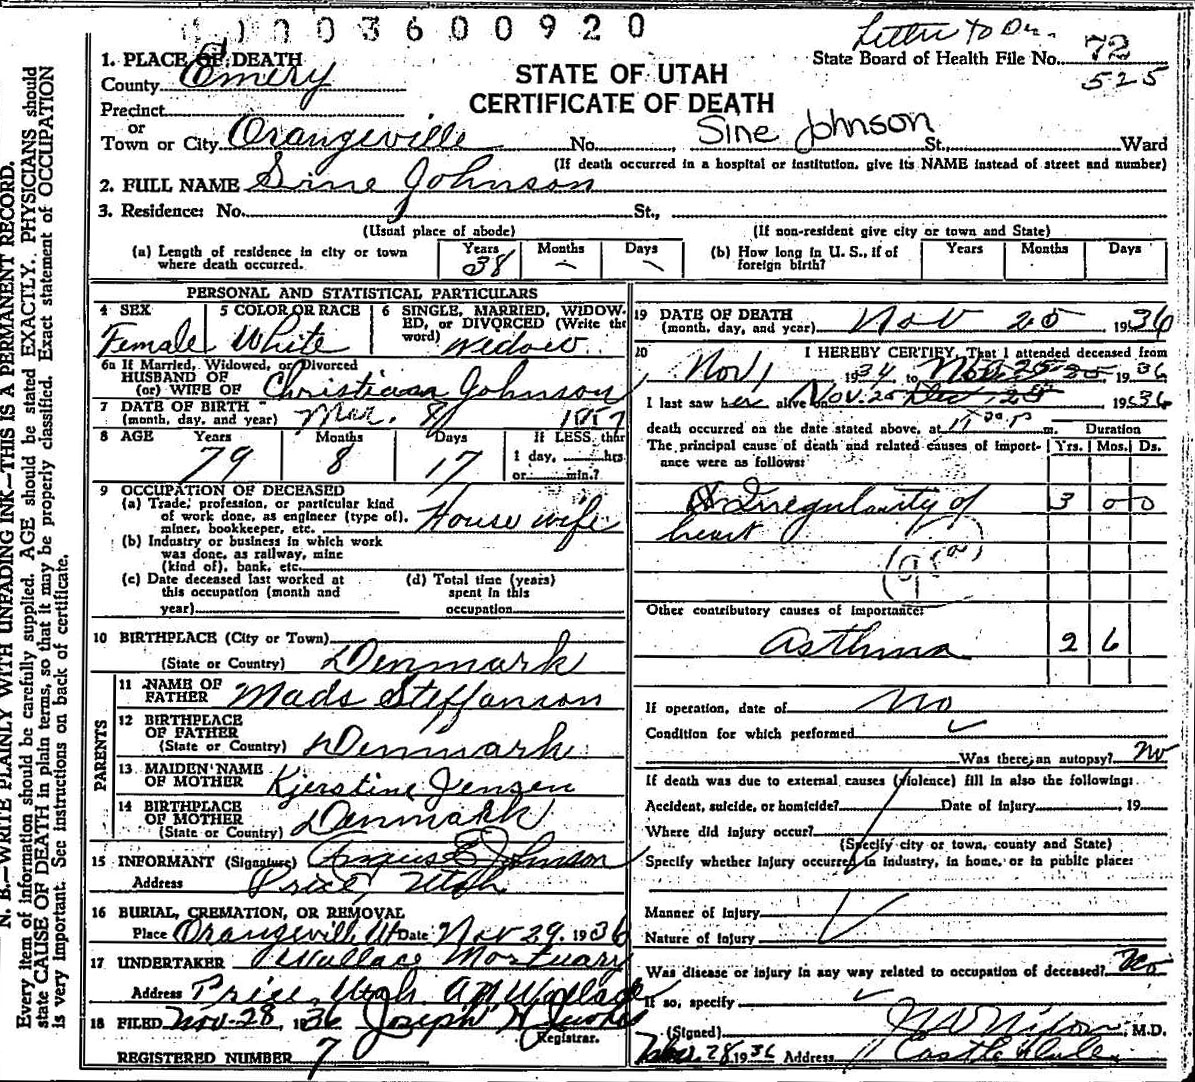 003600920
Letter to Dr.
1. PLACE OF DEATH
STATE OF UTAH
CERTIFICATE OF DEATH
State Board of Health File No. 72
525
County Emery
Precinct
or
Town or City Orangeville No. Sine Johnson St., Ward
(If death occurred in a hospital or institution, give its NAME instead of street and number)
2. FULL NAME Sine Johnson
3. Residence: No. St.,
(Usual place of abode) (If non-resident give city or town and State)
(a) Length of residence in city or town where death occurred. Years 38 Months – Days –
(b) How long in U. S., if of foreign birth? Years Months Days
PERSONAL AND STATISTICAL PARTICULARS
4 SEX Female
5 COLOR OR RACE White
6 SINGLE, MARRIED, WIDOWED, or DIVORCED (Write the word) widow
6a If Married, Widowed, or Divorced
HUSBAND OF
(or) WIFE OF Christiaan Johnson
7 DATE OF BIRTH
(month, day, and year) Mar. 8, 1857
8 AGE Years 79 Months 8 Days 17 If LESS than 1 day, hrs or min.?
9 OCCUPATION OF DECEASED
(a) Trade, profession, or particular kind
of work done, as engineer (type of),
miner, bookkeeper, etc. House wife
(b) Industry or business in which work
was done, as railway, mine
(kind of), bank, etc.
(c) Date deceased last worked at this occupation (month and year)
(d) Total time (years) spent in this occupation
10 BIRTHPLACE (City or Town)
(State or Country) Denmark
PARENTS
11 NAME OF FATHER Mads Steffanson
12 BIRTHPLACE OF FATHER
(State or Country) Denmark
13 MAIDEN NAME OF MOTHER Kjerstine Jensen
14 BIRTHPLACE OF MOTHER
(State or Country) Denmark
15 INFORMANT (Signature) Angus E Johnson
Address Price, Utah
16 BURIAL, CREMATION, OR REMOVAL
Place Orangeville, Ut Date Nov 29. 1936
17 UNDERTAKER Wallace Mortuary
Address Price, Utah. A M Wallace
18 FILED Nov-28, 1936 Joseph H
Registrar.
REGISTERED NUMBER 7
19 DATE OF DEATH
(month, day, and year) Nov 25 1936
20 I HEREBY CERTIFY, That I attended deceased from
Nov 1 1934 to Nov. 25 1936
I last saw her alive on Nov. 25 1936
death occurred on the date stated above, at m. Duration
The principal cause of death and related causes of importance were as follows: Yrs. Mos. Ds.
Irregularity of 3 0 0
heart
Other contributory causes of importance:
Asthma 2 6
If operation, date of No
Condition for which performed
Was there an autopsy? No
If death was due to external causes (violence) fill in also the following:
Accident, suicide, or homicide? Date of Injury 19
Where did injury occur?
(Specify city or town, county and State)
Specify whether injury occurred in industry, in home, or in public place:
Manner of Injury
Nature of Injury
Was disease or injury in any way related to occupation of deceased? No
If so, specify
(Signed) Nixon, M.D.
28 1936 Address Castle Dale
N. B.—WRITE PLAINLY WITH UNFADING INK—THIS IS A PERMANENT RECORD.
Every item of information should be carefully supplied. AGE should be stated EXACTLY. PHYSICIANS should
state CAUSE OF DEATH in plain terms, so that it may be properly classified. Exact statement of OCCUPATION
is very important. See instructions on back of certificate.